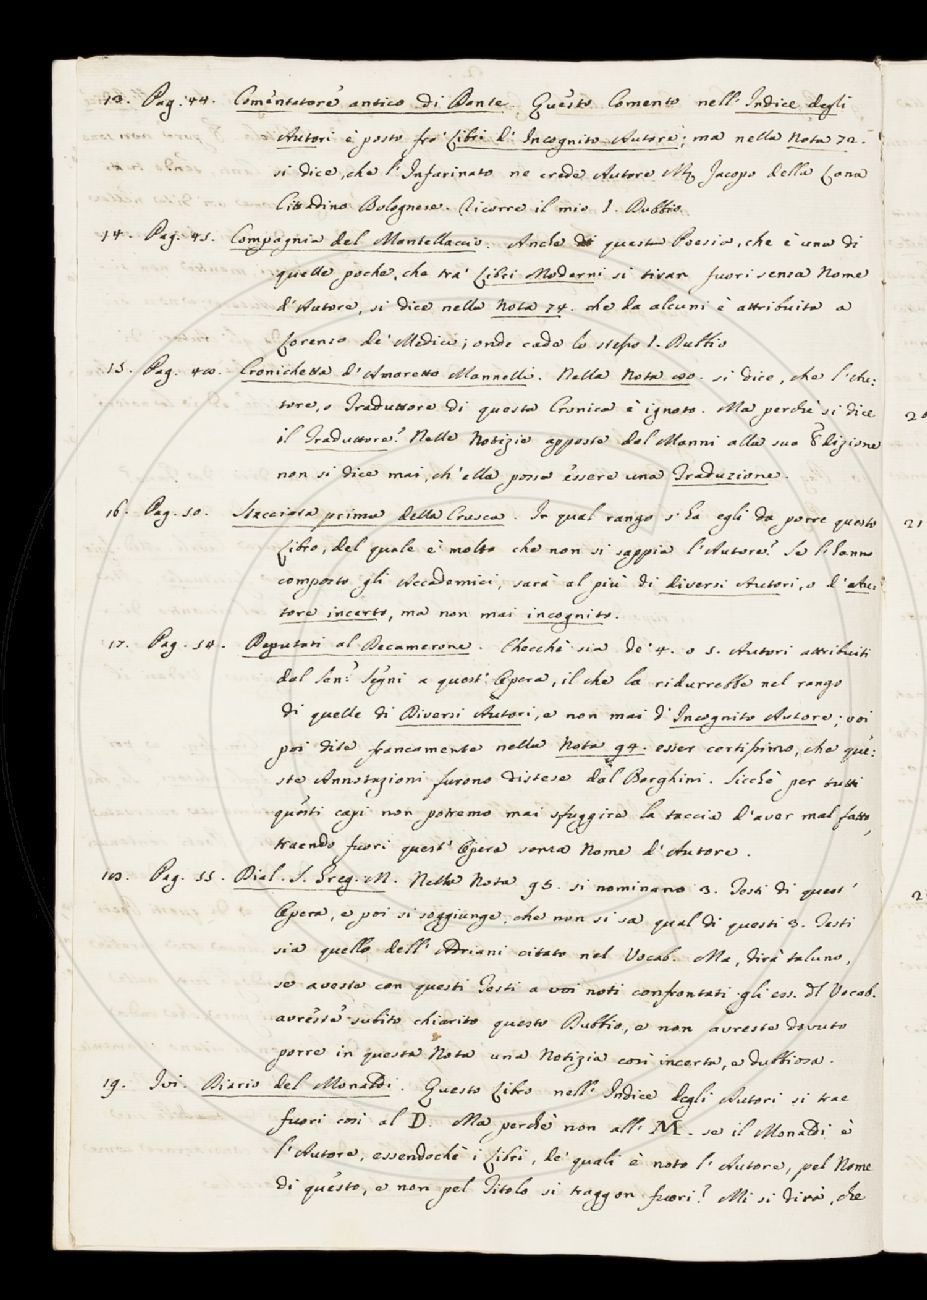 13. Pag. 44. Comentatore antico di Dante. Questo Comento nell' Indice degli
Autori è posto fra' Libri d' Incognito Autore; ma nella Nota 72.
si dice, che l' Infarinato ne crede Autore Mr. Jacopo della Lana
Cittadino Bolognese. Ricorre il mio 1. Dubbio.
14. Pag. 45. Compagnia del Mantellaccio. Anche di questa Poesia, che è una di
quelle poche, che tra' Libri Moderni si tiran fuori senza Nome
d' Autore, si dice nella Nota 74. che da alcuni è attribuita a
Lorenzo de' Medici; onde cade lo stesso 1. Dubbio
15. Pag. 48. Cronichetta d' Amaretto Mannelli. Nella Nota 80. si dice, che l' Au:
tore, o Traduttore di questa Cronica è ignoto. Ma perchè si dice
il Traduttore? Nelle Notizie apposte dal Manni alla sua Edizione
non si dice mai, ch' ella possa essere una Traduzione.
16. Pag. 50. Stacciata prima della Crusca. In qual rango s' ha egli da porre questo
Libro, del quale è molto che non si sappia l' Autore? Se l' hanno
composto gli Accademici, sarà al più di diversi Autori, o d' Au:
tore incerto, ma non mai incognito.
17. Pag. 54. Deputati al Decamerone. Checchè sia de' 4. o 5. Autori attribuiti
dal Sen.r Segni a quest' Opera, il che la ridurrebbe nel rango
di quelle di Diversi Autori, e non mai d' Incognito Autore; voi
poi dite francamente nella Nota 94. esser certissimo, che que:
ste Annotazioni furono distese dal Borghini. Sicchè per tutti
questi capi non potremo mai sfuggire la taccia d' aver mal fatto,
traendo fuori quest' Opera senza Nome d' Autore.
18. Pag. 55. Dial. S. Greg. M. Nella Nota 95. si nominano 3. Testi di quest'
Opera, e poi si soggiunge, che non si sa qual di questi 3. Testi
sia quello dell' Adriani citato nel Vocab. Ma, dirà taluno,
se aveste con questi Testi a voi noti confrontati gli es. dl Vocab.
avreste subito chiarito questo Dubbio, e non avreste dovuto
porre in questa Nota una Notizia così incerta, e dubbiosa.
19. Ivi. Diario del Monaldi. Questo Libro nell' Indice degli Autori si trae
fuori così al D. Ma perchè non all' M. se il Monaldi è
l' Autore, essendochè i Libri, de' quali è noto l' Autore, pel Nome
di questo, e non pel Titolo si traggon fuori? Mi si dirà, che